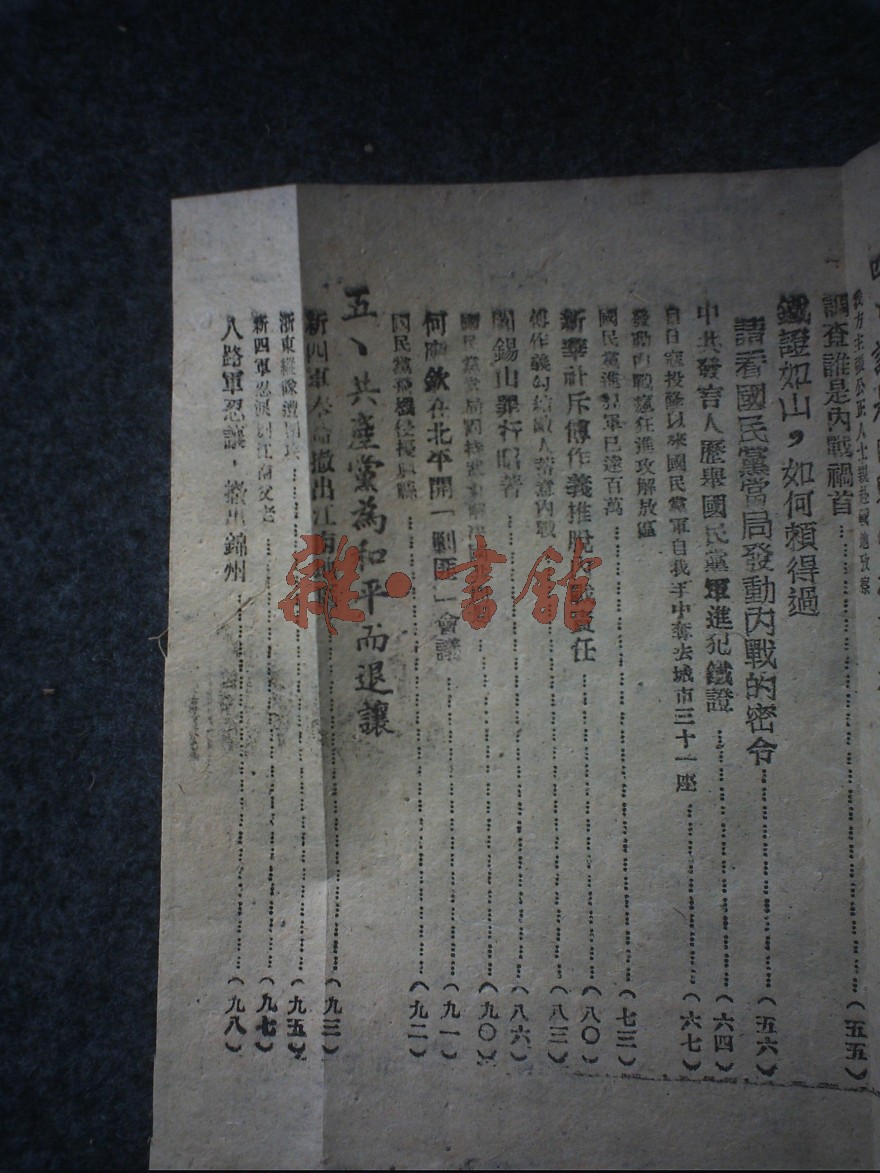 四、
調查誰是內戰禍首……（五五）
鐵證如山，如何賴得過
請看國民黨當局發動內戰的密令……（五六）
中共發言人歷舉國民黨軍進犯鐵證……（六四）
自日寇投降以來國民黨軍自我手中奪去城市三十一座……（六七）
發動內戰瘋狂進攻解放區
國民黨進犯軍已達百萬……（七三）
新華社斥傅作義推脫內戰責任……（八〇）
傅作義勾結敵人蓄意內戰……（八三）
閻錫山罪行昭著……（八六）
國民黨當局……（九〇）
何應欽在北平開「剿匪」會議……（九一）
國民黨飛機侵擾……（九二）
五、共產黨為和平而退讓
新四軍奉命撤出江南……（九三）
浙東縱隊遭……（九五）
新四軍忍淚別江南父老……（九七）
八路軍忍讓，撤出錦州……（九八）
雜·書館